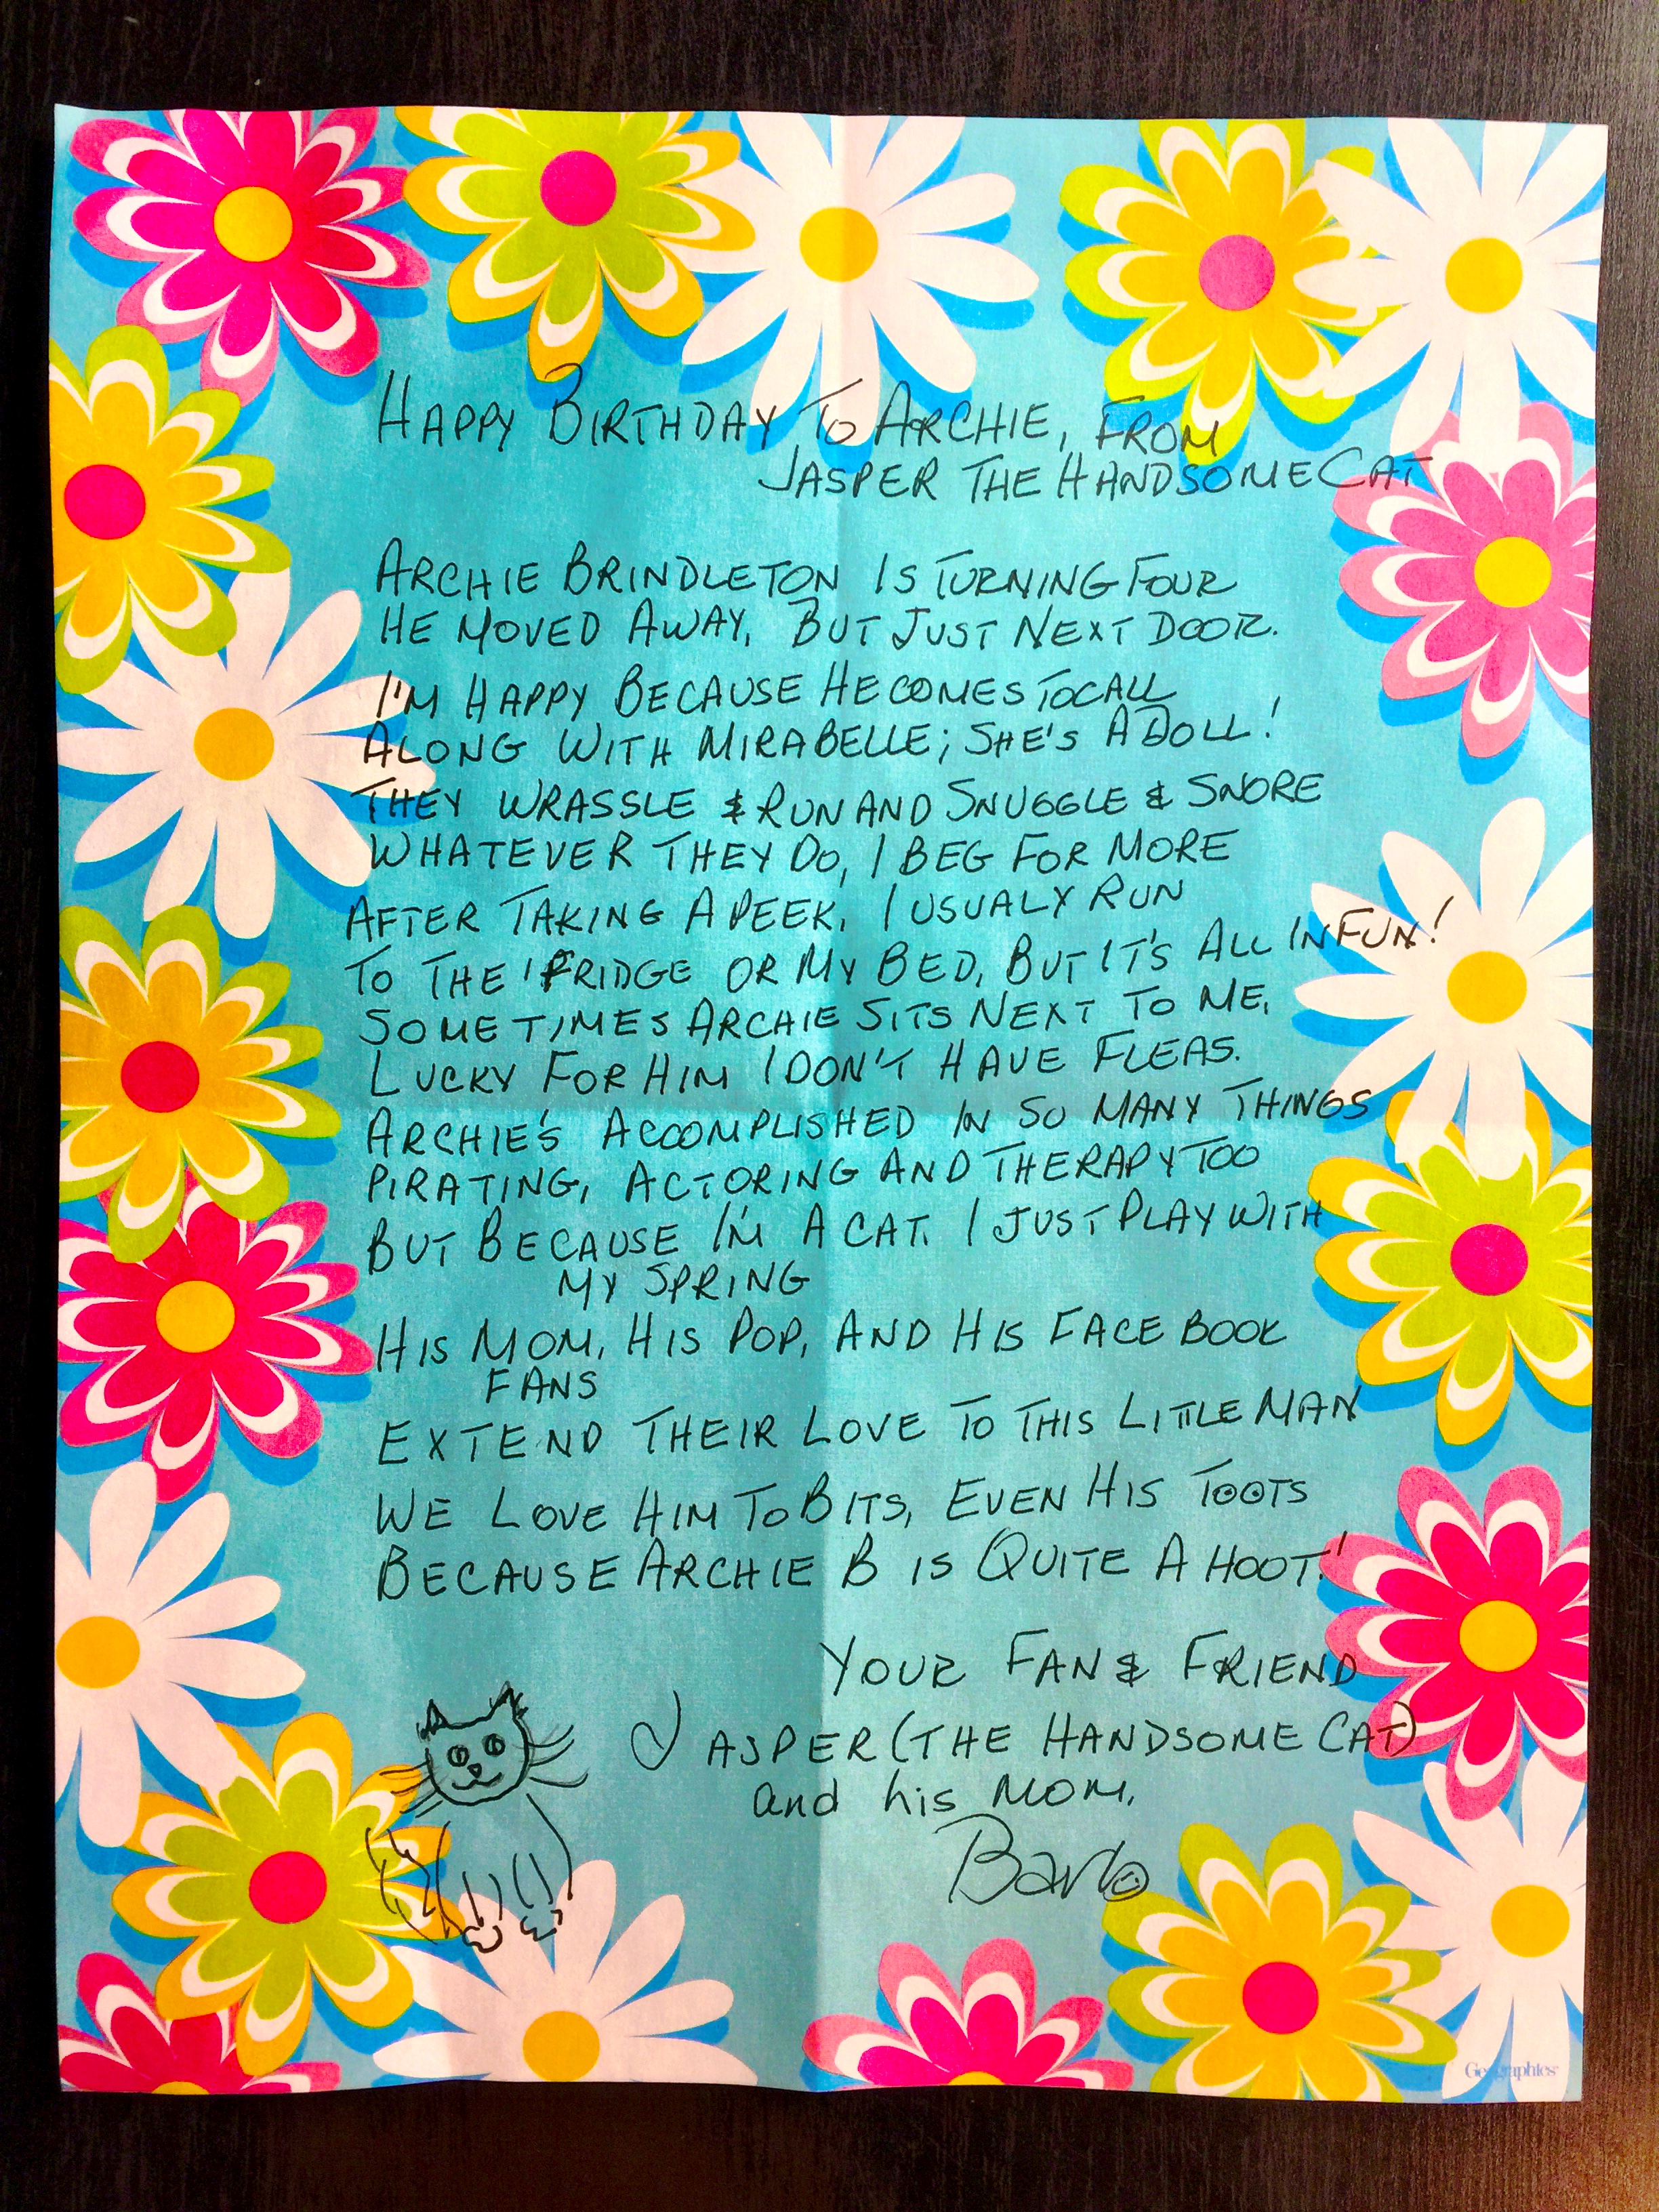 HAPPY BIRTHDAY TO ARCHIE, FROM
JASPER THE HANDSOME CAT
ARCHIE BRINDLETON IS TURNING FOUR
HE MOVED AWAY, BUT JUST NEXT DOOR.
I'M HAPPY BECAUSE HE COMES TO CALL
ALONG WITH MIRABELLE; SHE'S A DOLL!
THEY WRASSLE & RUN AND SNUGGLE & SNORE
WHATEVER THEY DO, I BEG FOR MORE
AFTER TAKING A PEEK, I USUALY RUN
TO THE 'FRIDGE OR MY BED, BUT IT'S ALL IN FUN!
SOMETIMES ARCHIE SITS NEXT TO ME,
LUCKY FOR HIM I DON'T HAVE FLEAS.
ARCHIE'S ACCOMPLISHED IN SO MANY THINGS
PIRATING, ACTORING AND THERAPY TOO
BUT BECAUSE I'M A CAT, I JUST PLAY WITH
MY SPRING
HIS MOM, HIS POP, AND HIS FACE BOOK
FANS
EXTEND THEIR LOVE TO THIS LITTLE MAN
WE LOVE HIM TO BITS, EVEN HIS TOOTS
BECAUSE ARCHIE B IS QUITE A HOOT!
YOUR FAN & FRIEND
JASPER (THE HANDSOME CAT)
and his MOM,
Barb
Geographics